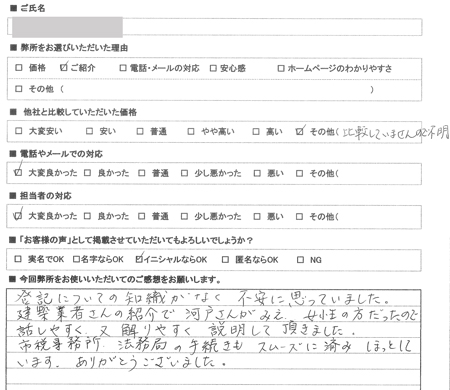 ■ ご氏名
■ 弊所をお選びいただいた理由
□ 価格 ☑ ご紹介 □ 電話・メールの対応 □ 安心感 □ ホームページのわかりやすさ
□ その他 ( )
■ 他社と比較していただいた価格
□ 大変安い □ 安い □ 普通 □ やや高い □ 高い ☑ その他( 比較していませんので不明
■ 電話やメールでの対応
☑ 大変良かった □ 良かった □ 普通 □ 少し悪かった □ 悪い □ その他(
■ 担当者の対応
☑ 大変良かった □ 良かった □ 普通 □ 少し悪かった □ 悪い □ その他(
■ 「お客様の声」として掲載させていただいてもよろしいでしょうか?
□ 実名でOK □ 名字ならOK ☑ イニシャルならOK □ 匿名ならOK □ NG
■ 今回弊所をお使いいただいてのご感想をお願いします。
登記についての知識がなく 不安に思っていました。
建築業者さんの紹介で 河戸さんがみえ、女性の方だったので
話しやすく、又 解りやすく 説明して 頂きました。
市税事務所 法務局の手続きも スムーズに済み ほっとして
います。ありがとうございました。